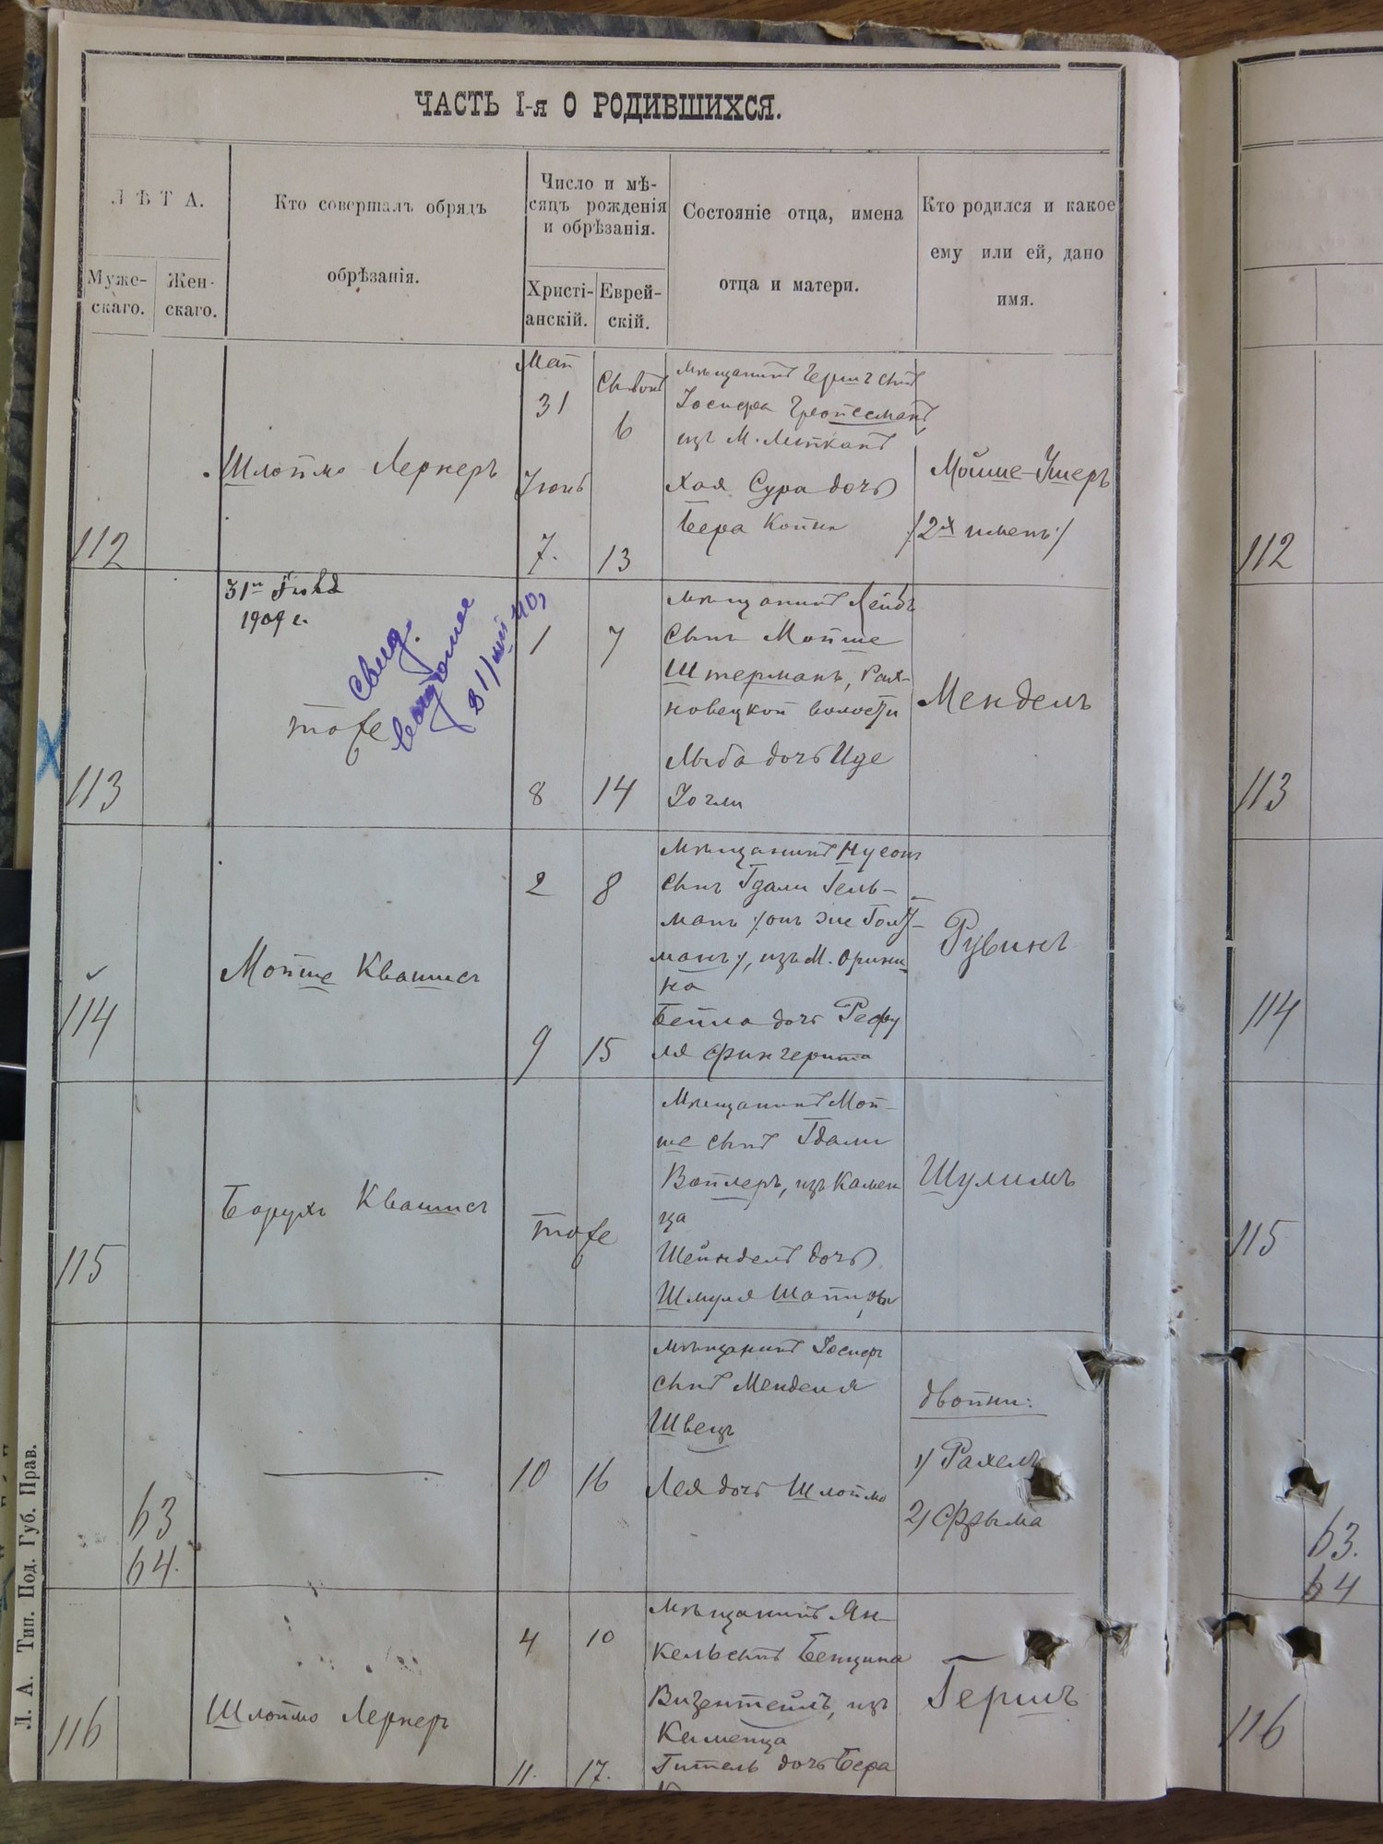 ЧАСТЬ I-я О РОДИВШИХСЯ.
ЛѢТА.
Муже-
скаго.
Жен-
скаго.
Кто совершалъ обрядъ
обрѣзанія.
Число и мѣ-
сяцъ рожденія
и обрѣзанія.
Христі-
анскій.
Еврей-
скій.
Состояніе отца, имена
отца и матери.
Кто родился и какое
ему или ей, дано
имя.
112
Шлойме Лернеръ
Мая
31
Июнь
7.
6
13
Мѣщанинъ Гершъ сынъ
Иосифа
изъ М. Липканъ
Хая Сура дочь
Бера
Мойше-Ушеръ
/2х именъ/
112
113
1909 г.
тоже
1
8
7
14
Мѣщанинъ Лейбъ
сынъ Мойше
Штерманъ,
новецкой волости
дочь
Мендель
113
114
Мойше Квашис
2
9
8
15
Мѣщанинъ Нусонъ
сынъ Гдали Гель-
манъ /онъ же
манъ/, изъ М. Орини-
на
Бейла дочь Рефу
ля
Рувинъ
114
115
Борухъ Квашис
тоже
Мѣщанинъ Мой-
ше сынъ Гдали
Вайлеръ, изъ Камен
ца
Шейндель дочь
Шмуля
Шулимъ
115
63
64.
10
16
Мѣщанинъ Иосифъ
сынъ Менделя
Швецъ
Лея дочь Шлоймо
двойни:
1) Рахель
2) Фрыма
63.
64
116
Шлоймо Лернеръ
4
11.
10
17.
Мѣщанинъ Ян-
кель сынъ Бенциона
Визентейлъ, изъ
Каменца
Гитель дочь Бера
Гершъ
116
Л. А. Тип. Под. Губ. Прав.